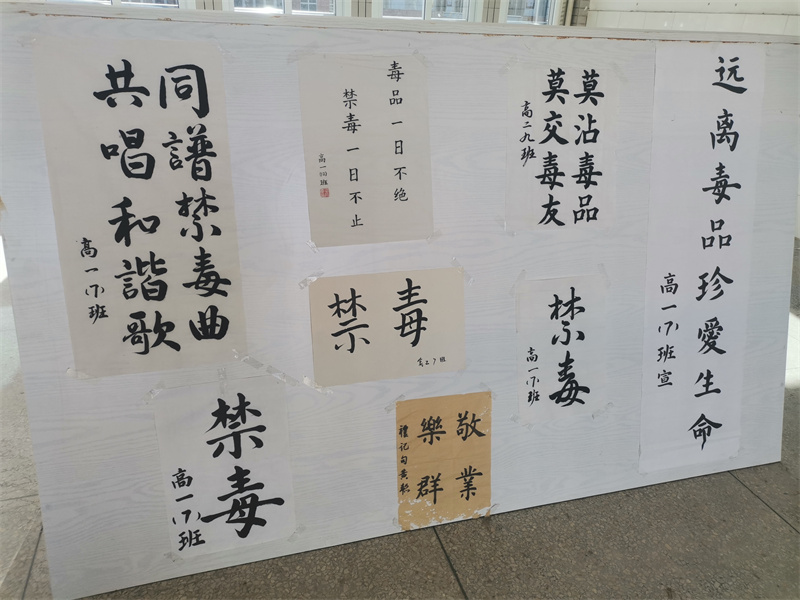 同譜禁毒曲
共唱和諧歌
高一(7)班
毒品一日不绝
禁毒一日不止
莫沾毒品
莫交毒友
高二九班
远离毒品珍愛生命
高一(7)班宣
禁毒
高二7班
禁毒
高一(7)班
禁毒
高一(7)班
敬業
樂群
禮记句